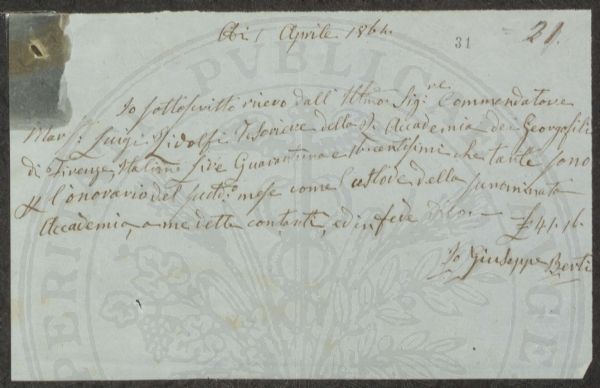 Adì 1 Aprile 1864.
31
21.
Io sottoscritto ricevo dall' Illmo Sigre Commendatore
Mar. Luigi Ridolfi Tesoriere della R. Accademia dei Georgofili
di Firenze Italiane Lire Quarantuna e 16 centesimi che tante sono
p l'onorario del sudto mese come Custode della sunominata
Accademia, a me dette contanti, ed in fede Dico £ 41.16
Io Giuseppe Berti
PUBLICAE
PERI